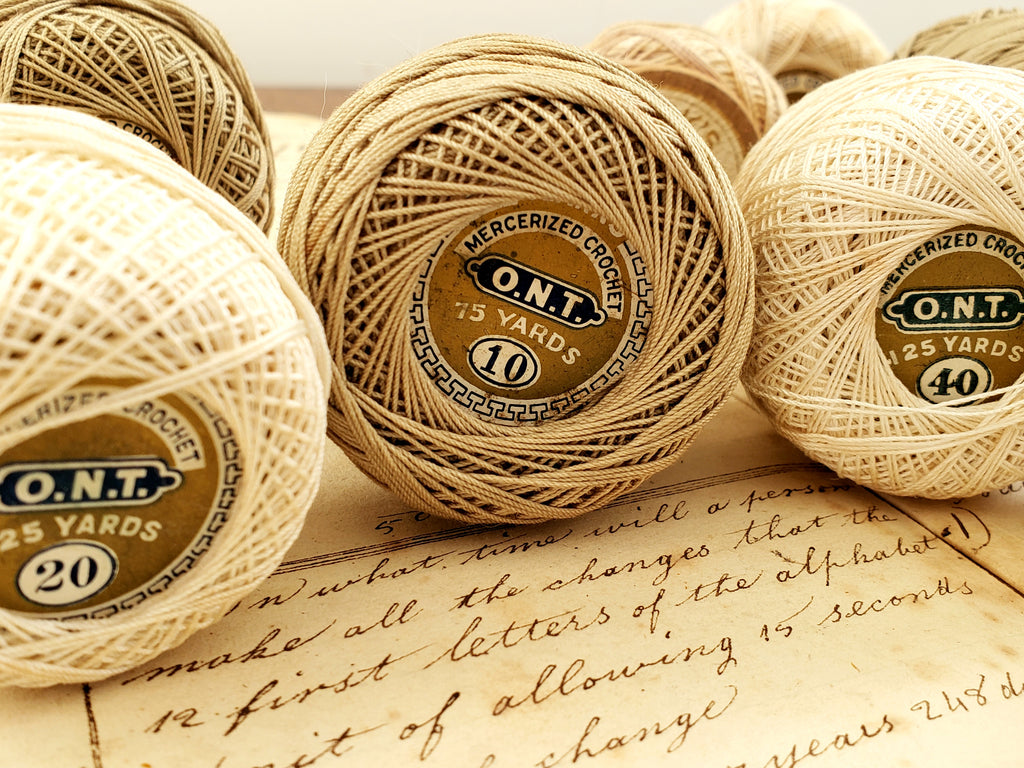 CROCHET
MERCERIZED CROCHET
O.N.T.
75 YARDS
10
MERCERIZED CROCHE
O.N.T.
125 YARDS
40
ERIZED CROCHET
O.N.T.
25 YARDS
20
5
n what time will a person
make all the changes that the
12 first letters of the alphabet
it of allowing 15 seconds
change
years 248 d